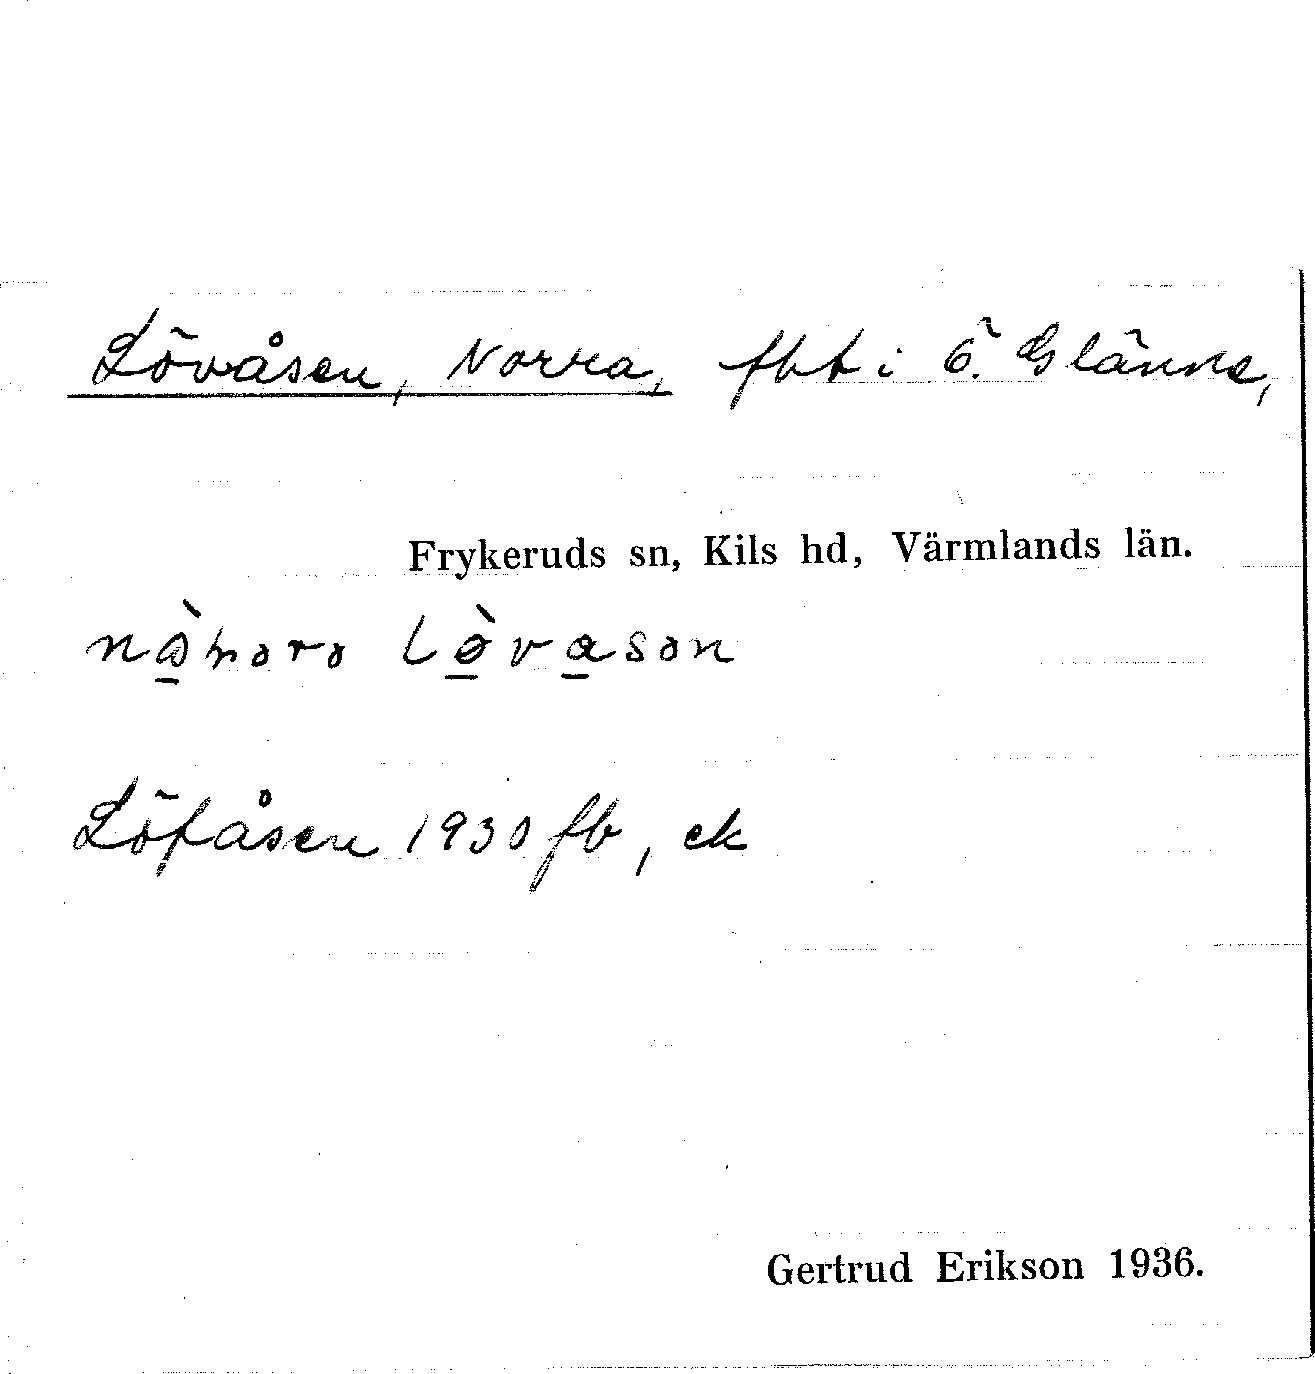 Lövåsen, Norra, fbt i Ö. Glänne,
Frykeruds sn, Kils hd, Värmlands län.
Löfåsen 1930 fb, ek
Gertrud Erikson 1936.